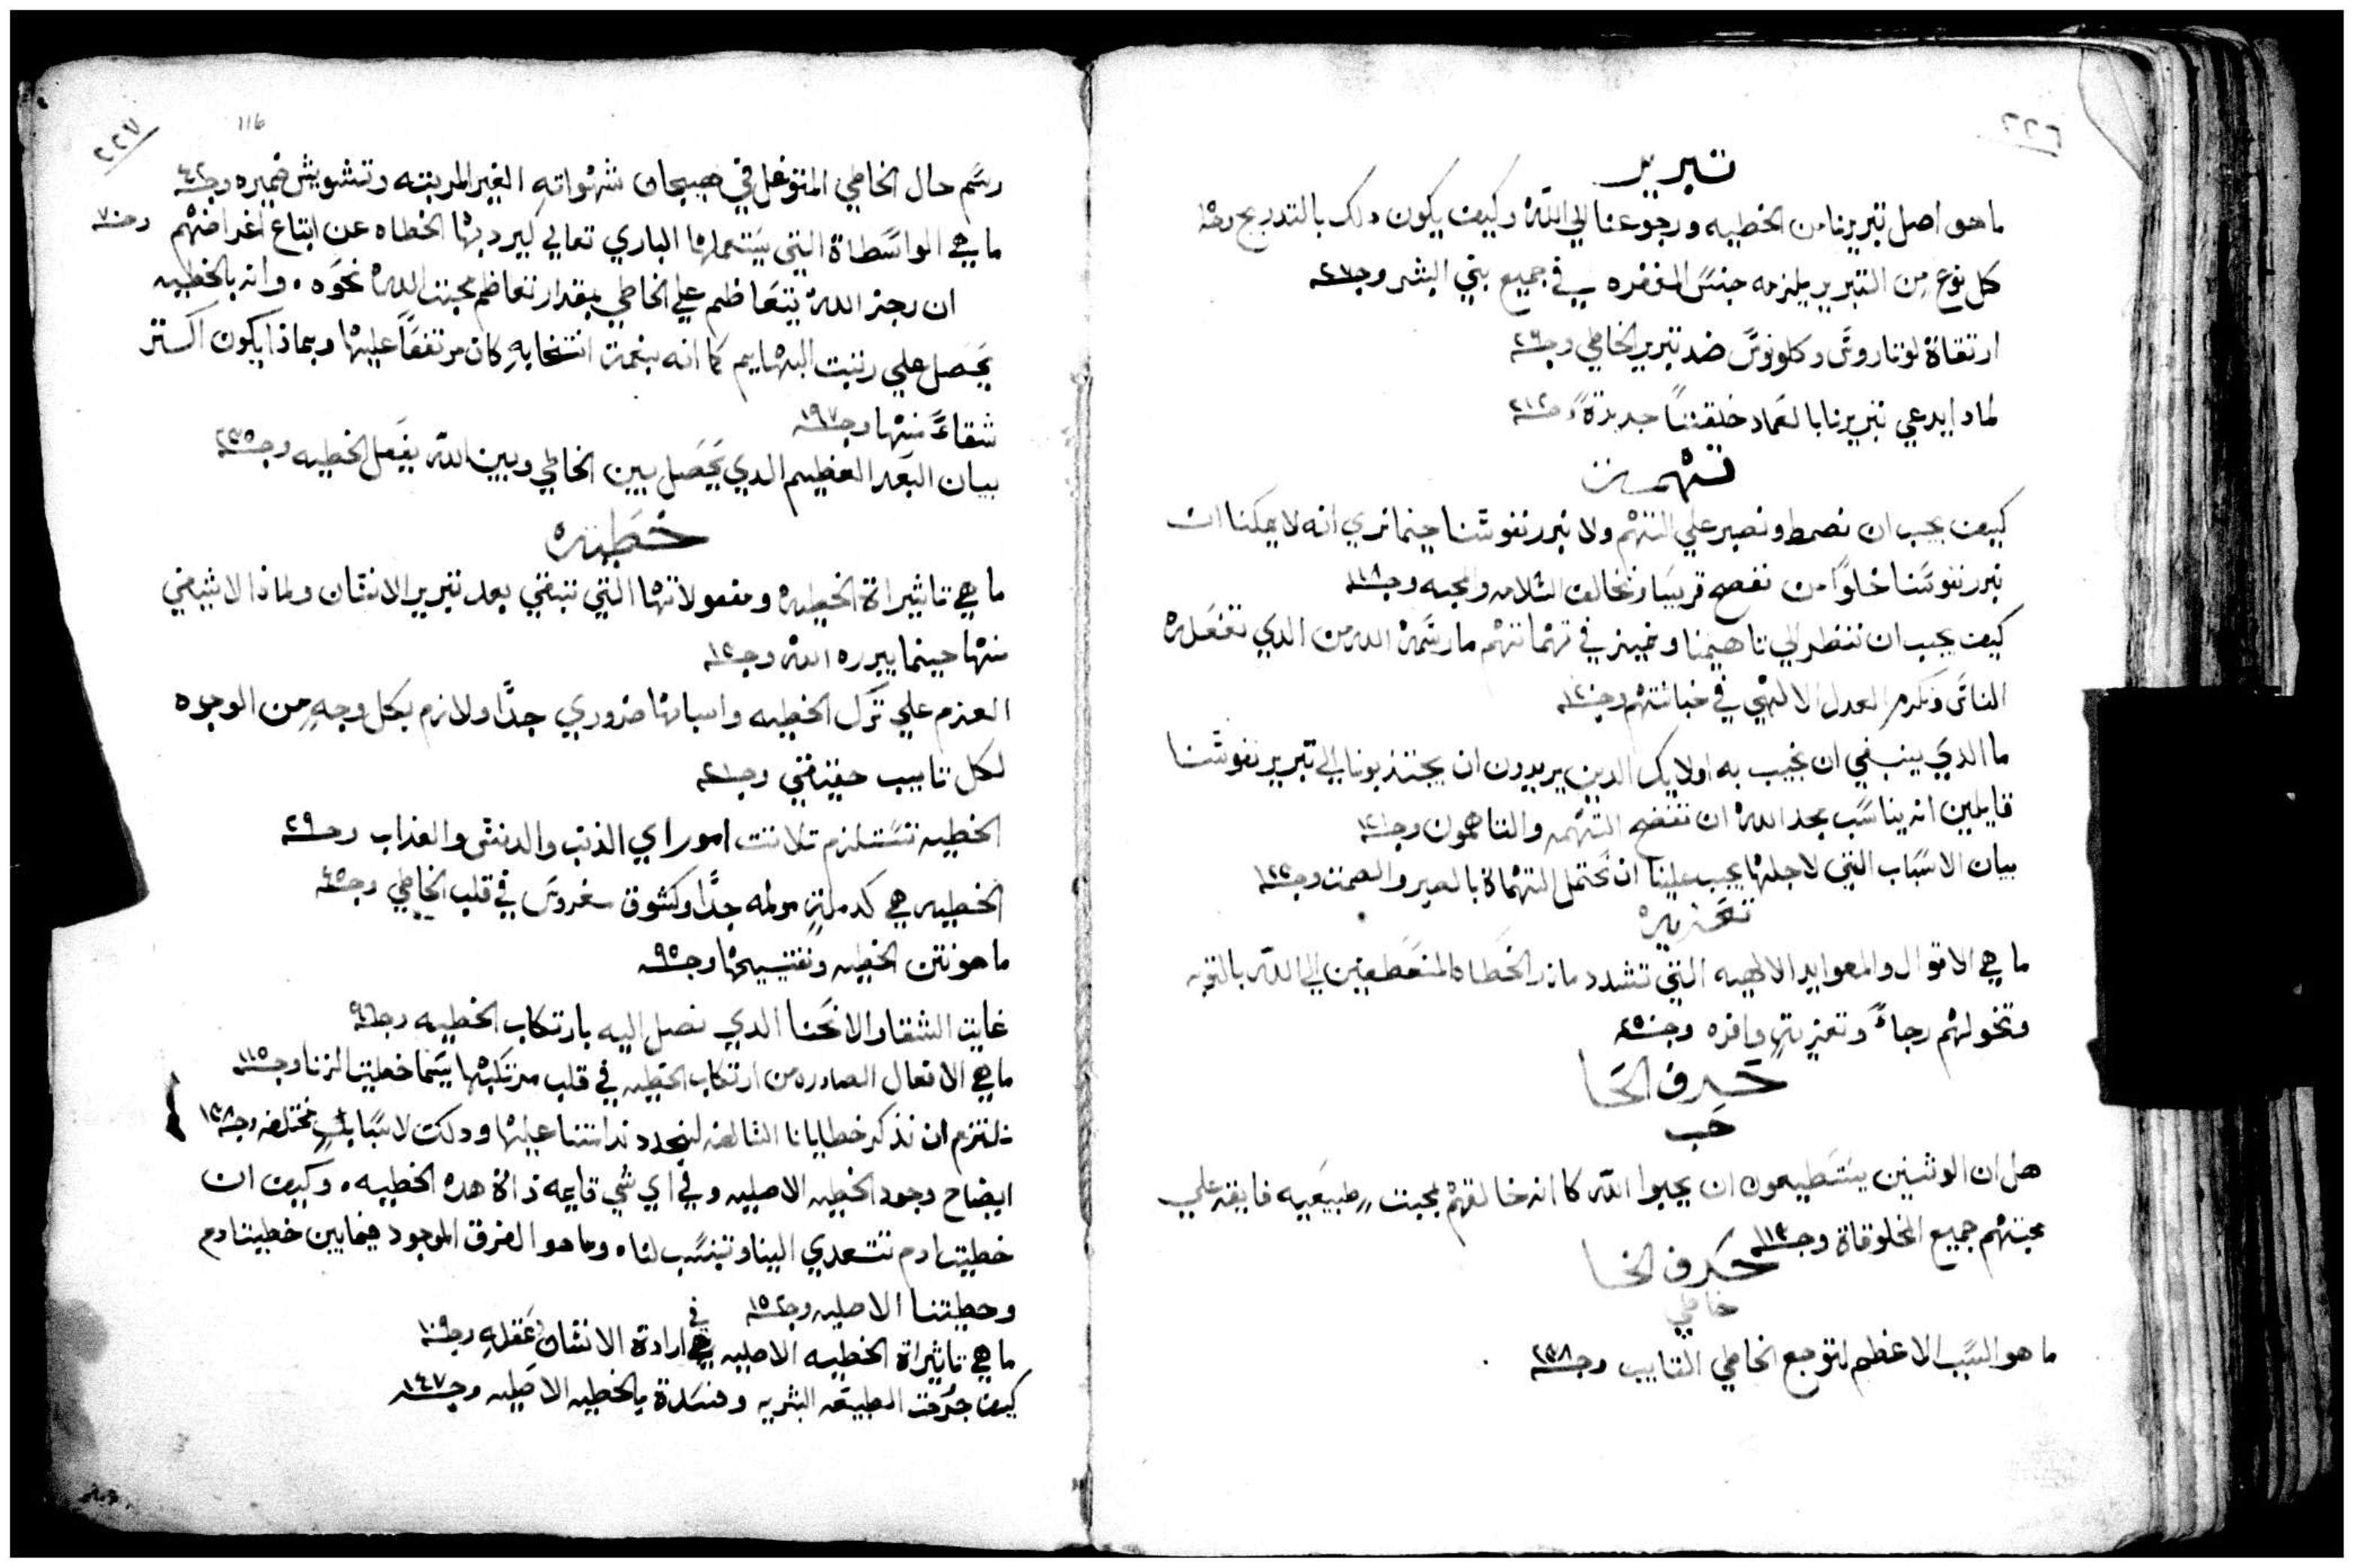 ٢٢٦
تبرير
ما هو اصل تبريرنا من الخطيه ورجوعنا الي الله وكيف يكون دلك بالتدريج وجه
كل نوع من التبرير يلزمه جنس المغفره في جميع بني البشر وجه ٢٧
ارتقاة لوتاروس وكلونوس ضد تبرير الخاطي وجه ٢٩
لمادا يدعي تبريرنا بالعماد خلقتاً جديدة وجه ٢١٢
تهمت
كيف يجب ان نصمط ونصبر علي التهم ولا نبرر نفوسنا حينما نري انه لا يمكنا ان
نبرر نفوسنا خلواً من نفضح قريبنا ونخالف السلامه والمحبه وجه ١١٨
كيف يجب ان ننظر الي تاهمينا ونميز في تهماتهم ما رسمه الله من الدي تفعله
الناس ونكرم العدل الالهي في خباثتهم وجه ١٢٠
ما الدي ينبغي ان نجيب به اولايك الدين يريدون ان يجتذبونا الي تبرير نفوسنا
قايلين انه يناسب مجد الله ان تنفضح التهمه والتاهمون وجه ١٢١
بيان الاسباب التي لاجلها يجب علينا ان نحتمل التهماة بالصبر والصمت وجه ١٢٢
تعزيه
ما هي الاقوال والمواعيد الالهيه التي تشدد مازر الخطاه المنعطفين الي الله بالتوبه
وتخولهم رجاءً وتعزيةٍ وافره وجه ٤٥
حرف الحا
حب
هل ان الوثنين يستطيعون ان يحبوا الله كما انه خالقهم بمحبت طبيعيه فايقه علي
محبتهم جميع المخلوقاة وجه ١١٢
حرف الخا
خاطي
ما هو السبب الاعظم لتوجع الخاطي التايب وجه ٢٣٨
٢٢٧
116
رسم حال الخاطي المتوغل في هيجان شهواته الغير المرتبه وتشويش ضميره وجه ٤٢
ما هي الواسطاة التي يستعملها الباري تعالي ليرد بها الخطاه عن اتباع اغراضهم وجه ٧
ان رجز الله يتعاظم علي الخاطي بمقدار تعاظم محبت الله نحوه . وانه بالخطيه
يحصل علي رتبت البهايم كما انه بنعمت انتخابهِ كان مرتفعاً عليها وبماذا يكون اكتر
شقاءً منها وجه ١٩٧
بيان البعد العظيم الدي يحصل بين الخاطي وبين الله بفعل الخطيه وجه ٢٣٥
خطيه
ما هي تاثيراة الخطيه ومفعولاتها التي تبقي بعد تبرير الانسان ولماذا لا تنتفي
منها حينما يبرره الله وجه ١٥
العزم علي ترك الخطيه واسبابها ضروري جداً ولازم بكل وجهٍ من الوجوه
لكل تايب حقيقي وجه ٢١
الخطيه تستلزم تلاتت امور اي الذنب والدنس والعذاب وجه ٢٩
الخطيه هي كدملةٍ مولمه جداً وكشوق مغروس في قلب الخاطي وجه ٤٥
ما هو نتن الخطيه وتقبيحها وجه ٩٥
غايت الشقا والانحنا الدي نصل اليه بارتكاب الخطيه وجه ٩٦
ما هي الافعال الصادره من ارتكاب الخطيه في قلب مرتكبها سيما خطيت الزنا وجه ١١٥
نلتزم ان نذكر خطايانا السالفه لنجدد ندامتنا عليها ودلك لاسبابٍ مختلفه وجه ١٣٨
ايضاح وجود الخطيه الاصليه وفي اي شي قايمه ذاة هده الخطيه . وكيف ان
خطيت ادم تتعدي الينا وتنسب لنا . وما هو الفرق الموجود فيما بين خطيت ادم
وخطيتنا الاصليه وجه ١٥٢
ما هي تاثيراة الخطيه الاصليه في ارادة الانسان وعقلهِ وجه ١٠٩
كيف جرحت الطبيعه البشريه وفسدة بالخطيه الاصليه وجه ١٤٧